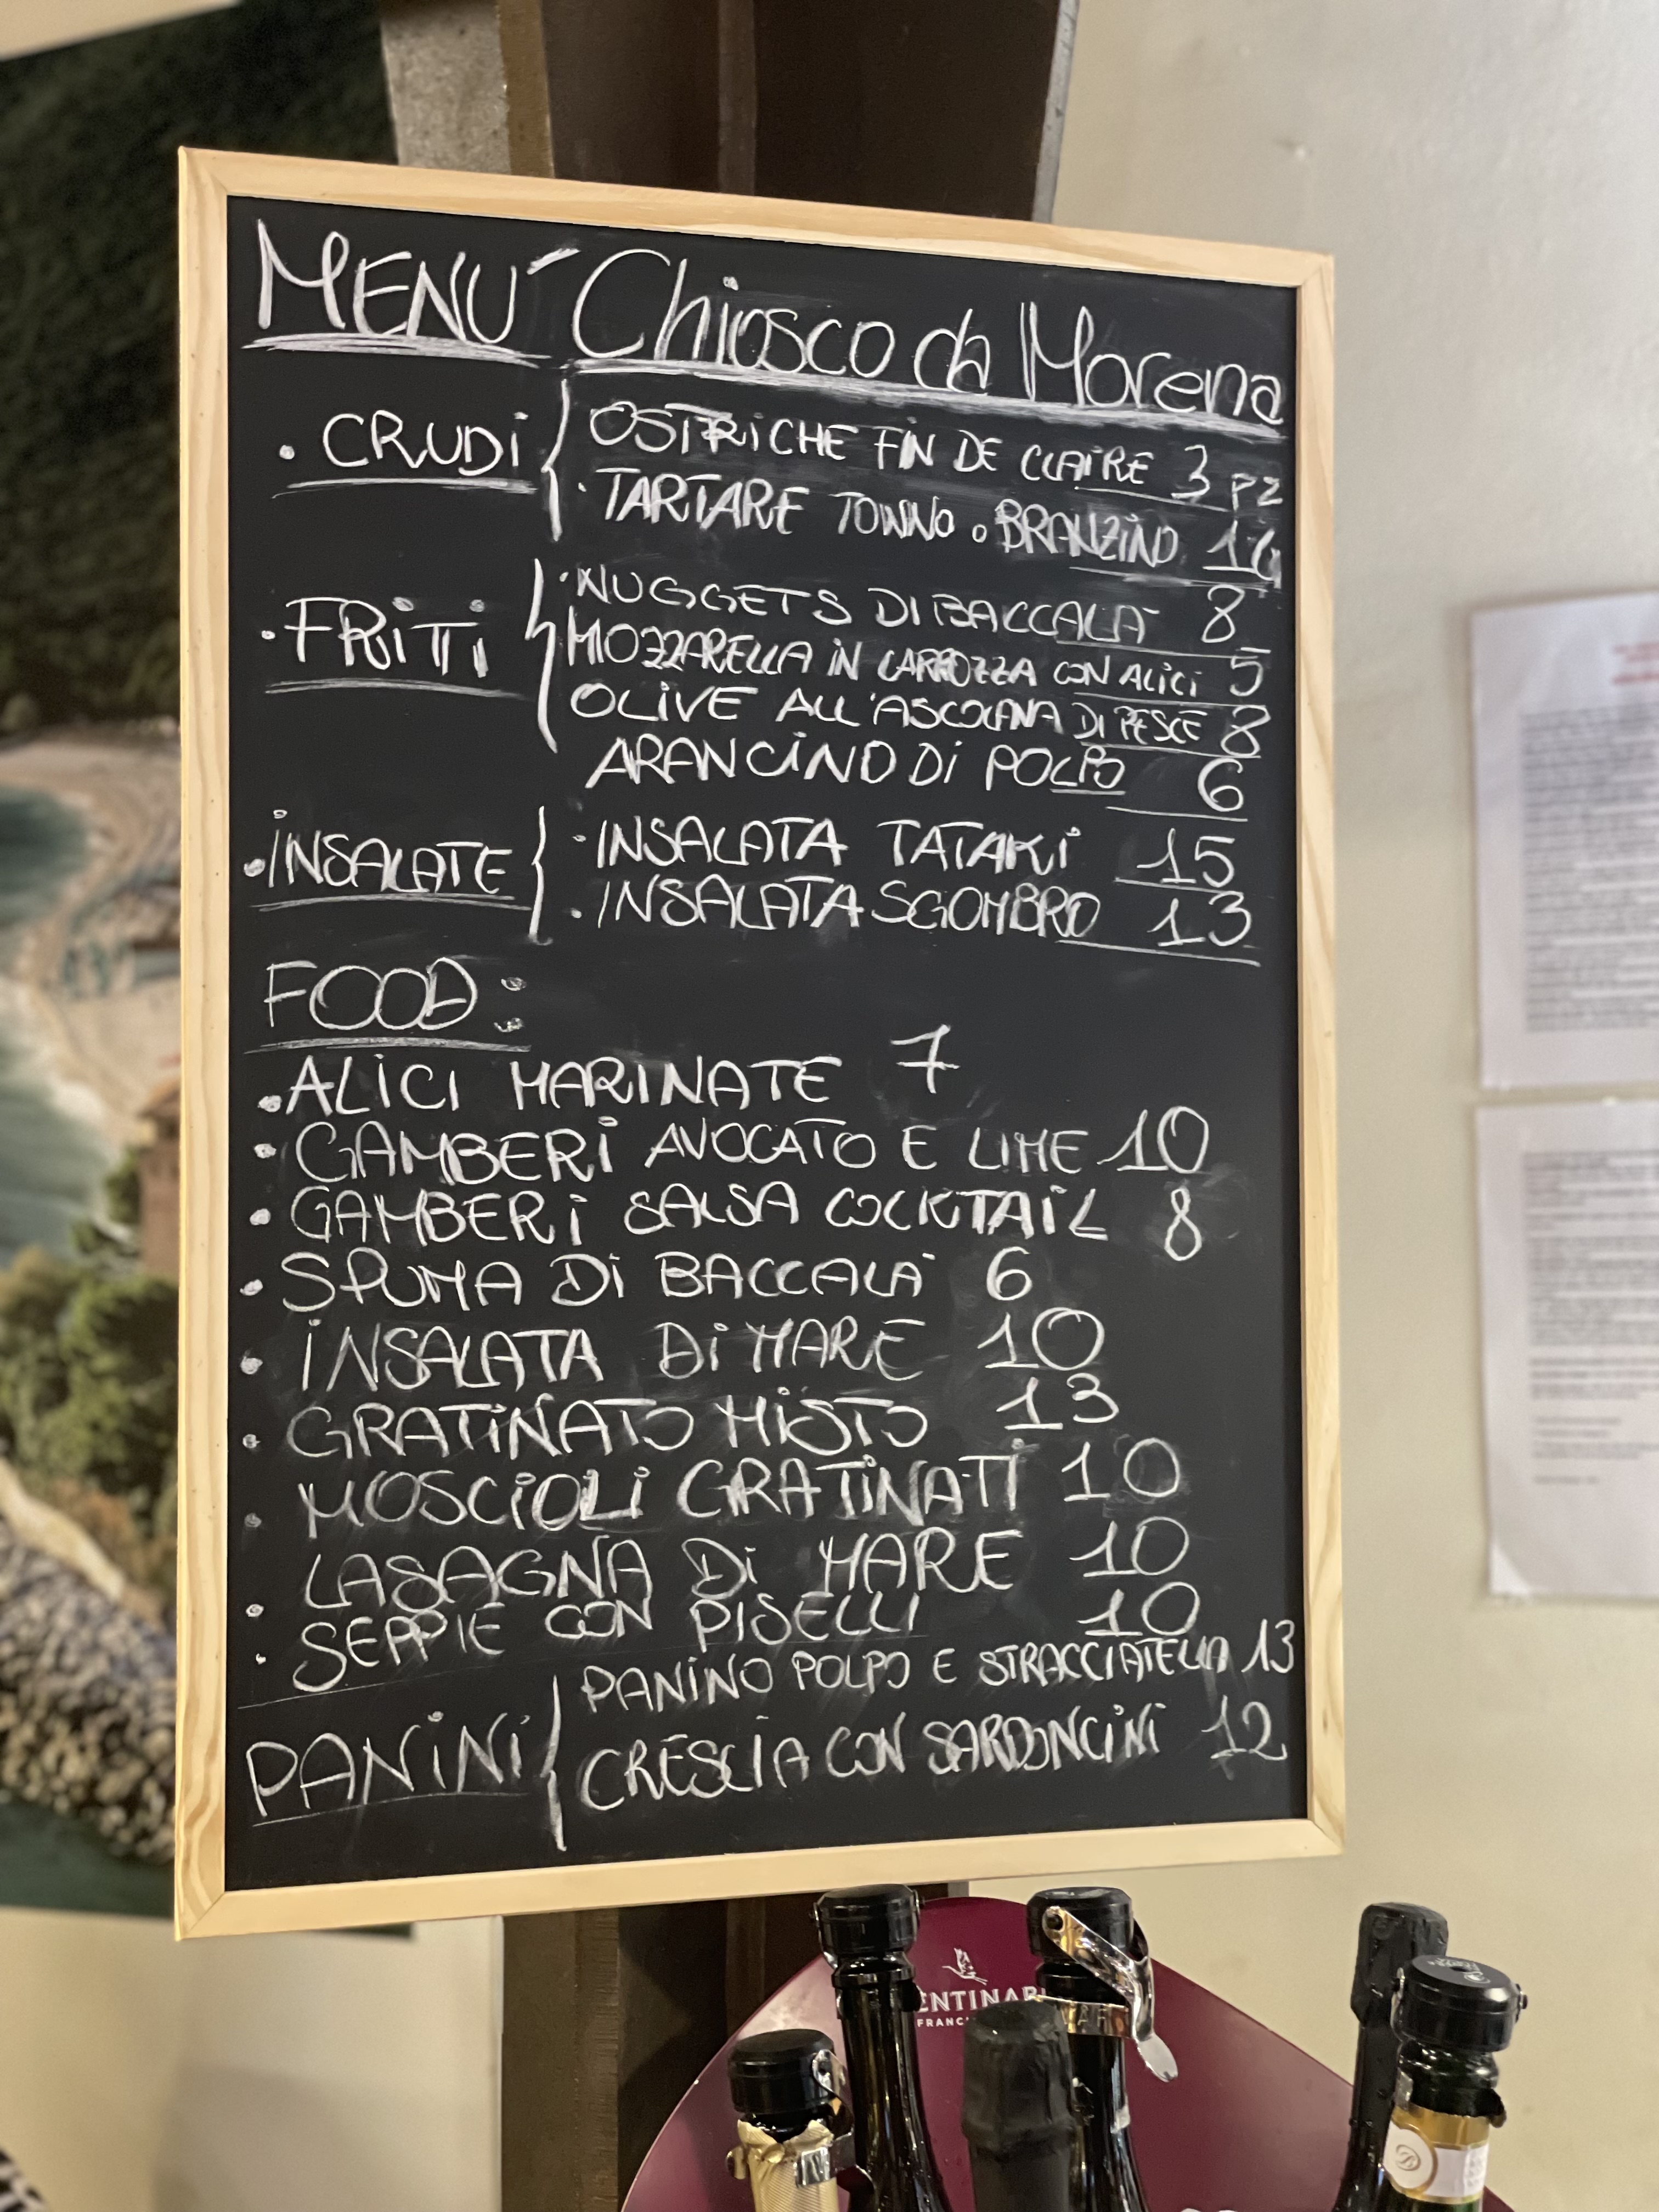 MENU´ Chiosco da Morena
· CRUDi
OSTRiCHE FiN DE CLAiRE 3 PZ
· TARTARE TONNO o BRANZiNO
· FRiTTi
· NUGGETS Di BACCALA´ 8
MOZZARELLA iN CARROZZA CON ALiCi 5
OLiVE ALL'ASCOLANA Di PESCE 8
ARANCiNO Di POLPO 6
· iNSALATE
· INSALATA TATAKi 15
· INSALATA SGOMBRO 13
FOOD:
· ALiCi MARINATE 7
· GAMBERi AVOCATO E LIME 10
· GAMBERi SALSA COCKTAiL 8
· SPUMA Di BACCALA´ 6
· iNSALATA Di MARE 10
· GRATiNATO MiSTO 13
· MOSCiOLi GRATiNATi 10
· LASAGNA Di MARE 10
· SEPPIE CON PISELLI 10
PANiNi
PANiNO POLPO E STRACCIATELLA 13
CRESCiA CON SARDONCiNi 12